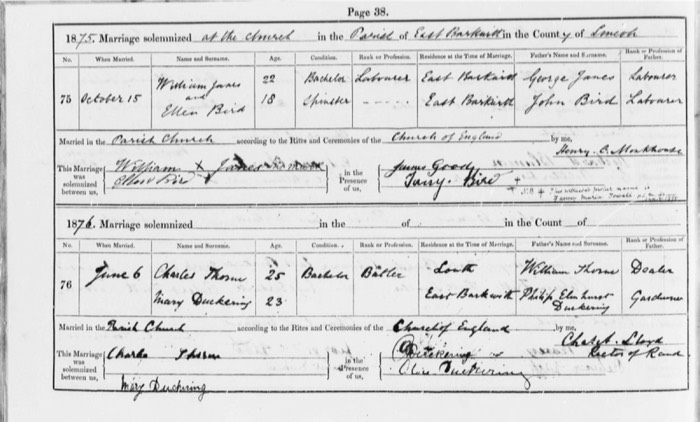 Page 38.
1875. Marriage solemnized at the Church in the Parish of East Barkwith in the County of Lincoln
No. When Married. Name and Surname. Age. Condition. Rank or Profession. Residence at the Time of Marriage. Father's Name and Surname. Rank or Profession of Father.
75 October 15 William Jones 22 Bachelor Labourer East Barkwith George Jones Labourer
and
Ellen Bird 18 Spinster - - - - - East Barkwith John Bird Labourer
Married in the Parish Church according to the Rites and Ceremonies of the Church of England by me,
Henry C. Monkhouse
This Marriage was solemnized between us, William X Jones
Ellen Bird
in the Presence of us, James Goody
Fanny Bird
1876. Marriage solemnized in the of in the Count of
No. When Married. Name and Surname. Age. Condition. Rank or Profession. Residence at the Time of Marriage. Father's Name and Surname. Rank or Profession of Father.
76 June 6 Charles Thorne 25 Bachelor Butler Louth William Thorne Dealer
Mary Duckering 23 East Barkwith Philip Elmhurst Duckering Gardener
Married in the Parish Church according to the Rites and Ceremonies of the Church of England by me,
Lloyd
Rector of Rand
This Marriage was solemnized between us, Charles Thorne
Mary Duckering
in the Presence of us, Duckering
Duckering